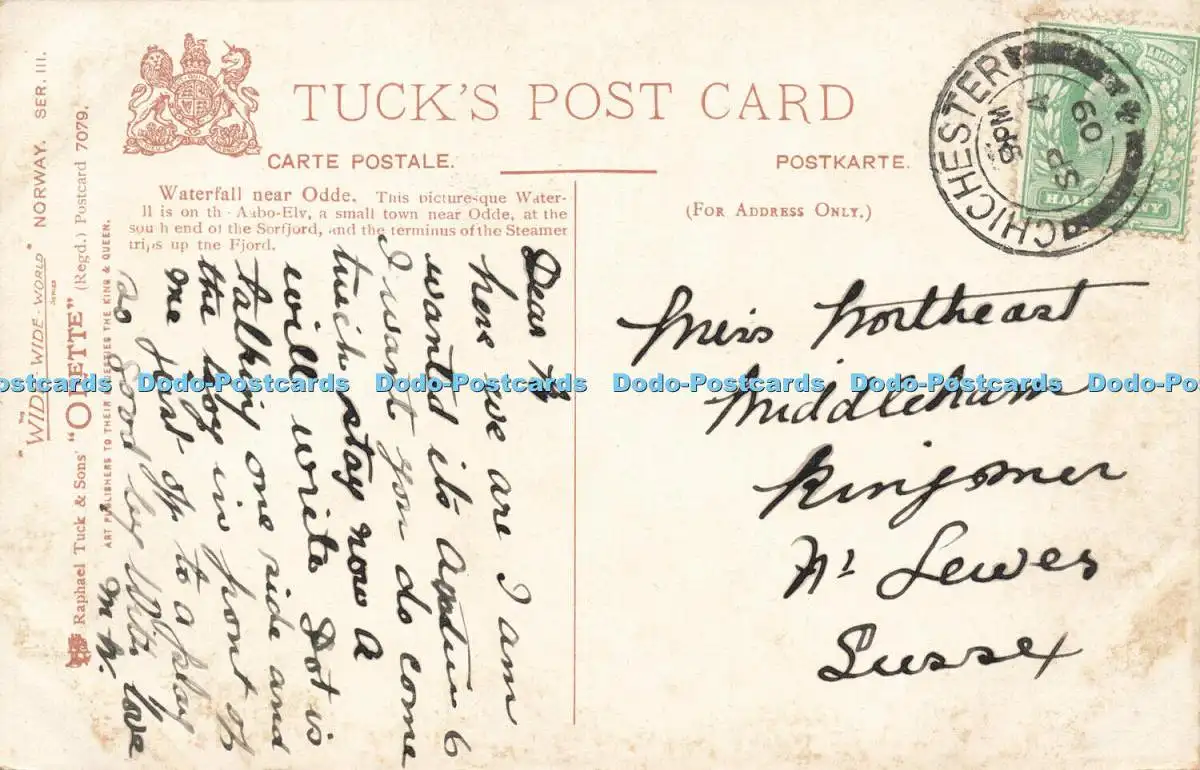 TUCK'S POST CARD
CARTE POSTALE.
POSTKARTE.
(FOR ADDRESS ONLY.)
Waterfall near Odde. This picturesque Water-
ll is on th Aabo-Elv, a small town near Odde, at the
sou h end of the Sorfjord, and the terminus of the Steamer
trips up the Fjord.
THE "WIDE-WIDE-WORLD" SERIES NORWAY. SER. III.
Raphael Tuck & Sons' "OILETTE" (Regd.) Postcard 7079.
ART PUBLISHERS TO THEIR MAJESTIES THE KING & QUEEN.
CHICHESTER
8 PM
SP 4
09
HALFPENNY
Dear
here we are I am
wanted its
I want you do come
stay now A
will write Dot is
talking one side and
the boy in front of
me just off to a play
so good bye With love
M N.
Miss Northeast
Middleham
Ringmer
Nr Lewes
Sussex
Dodo-Postcards Dodo-Postcards Dodo-Postcards Dodo-Postcards Dodo-Postcards Dodo-Postcards